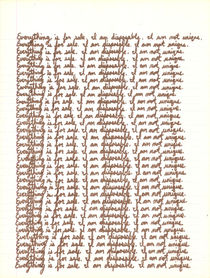 Everything is for sale. I am disposable. I am not unique.
Everything is for sale. I am disposable. I am not unique.
Everything is for sale. I am disposable. I am not unique.
Everything is for sale. I am disposable. I am not unique.
Everything is for sale. I am disposable. I am not unique.
Everything is for sale. I am disposable. I am not unique.
Everything is for sale. I am disposable. I am not unique.
Everything is for sale. I am disposable. I am not unique.
Everything is for sale. I am disposable. I am not unique.
Everything is for sale. I am disposable. I am not unique.
Everything is for sale. I am disposable. I am not unique.
Everything is for sale. I am disposable. I am not unique.
Everything is for sale. I am disposable. I am not unique.
Everything is for sale. I am disposable. I am not unique.
Everything is for sale. I am disposable. I am not unique.
Everything is for sale. I am disposable. I am not unique.
Everything is for sale. I am disposable. I am not unique.
Everything is for sale. I am disposable. I am not unique.
Everything is for sale. I am disposable. I am not unique.
Everything is for sale. I am disposable. I am not unique.
Everything is for sale. I am disposable. I am not unique.
Everything is for sale. I am disposable. I am not unique.
Everything is for sale. I am disposable. I am not unique.
Everything is for sale. I am disposable. I am not unique.
Everything is for sale. I am disposable. I am not unique.
Everything is for sale. I am disposable. I am not unique.
Everything is for sale. I am disposable. I am not unique.
Everything is for sale. I am disposable. I am not unique.
Everything is for sale. I am disposable. I am not unique.